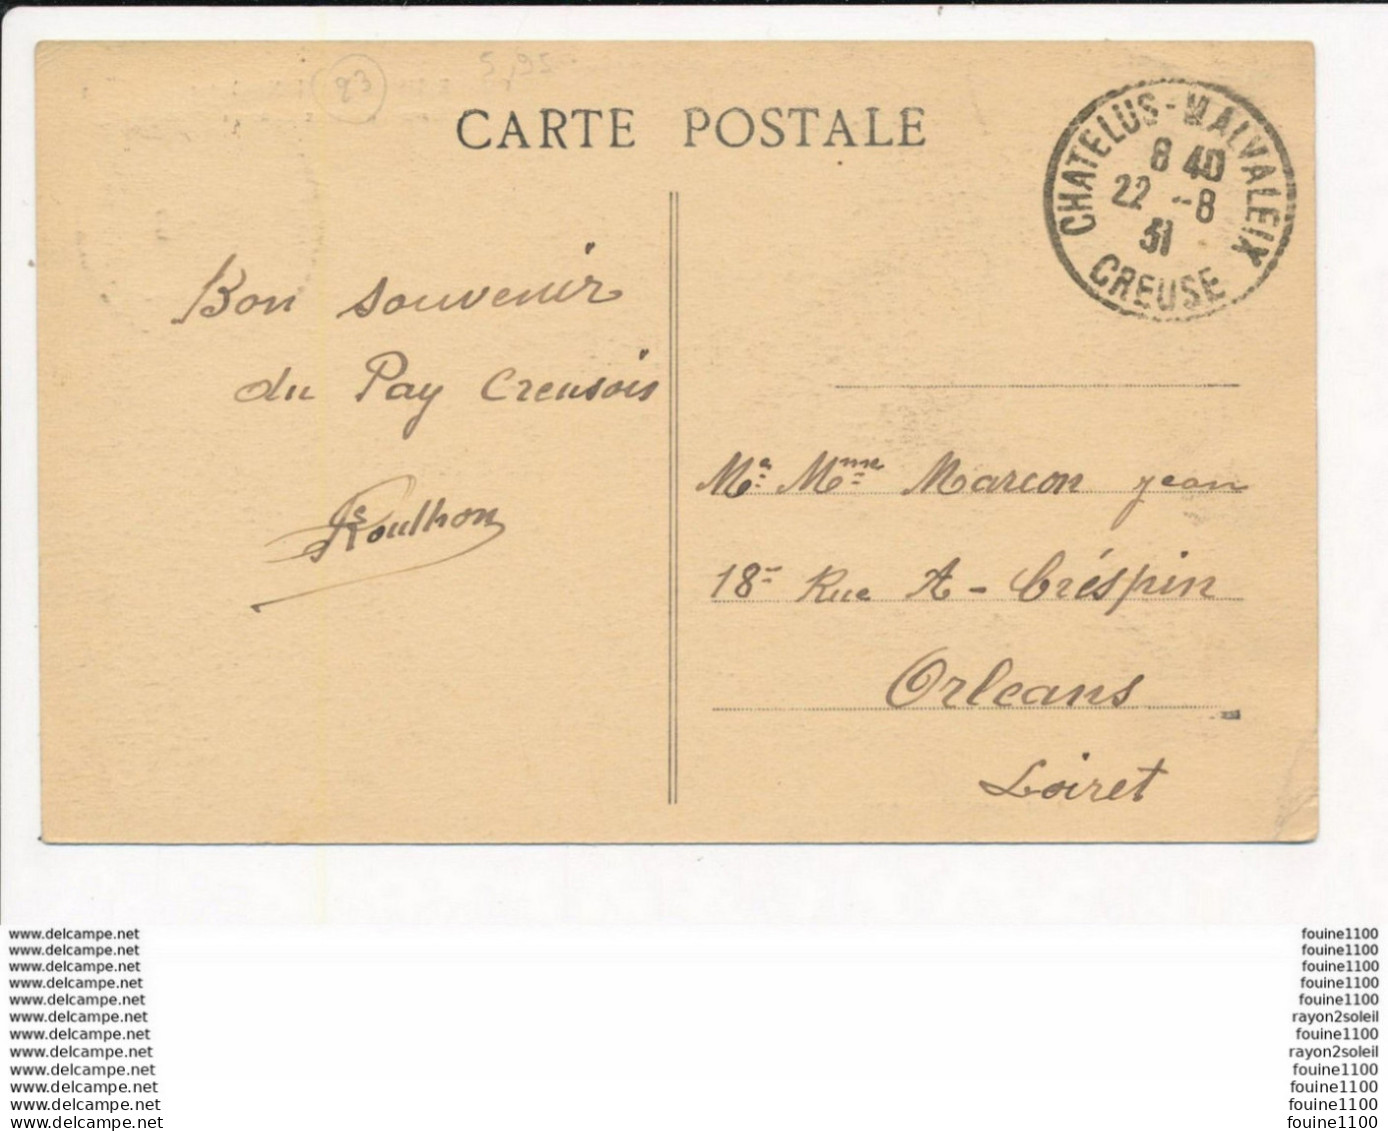 83
5,95
CARTE POSTALE
CHATELUS-MALVALEIX
8 40
22 -8
31
CREUSE
Bon souvenir
du Pay Creusois
Mr Mme Marcon jean
18 Rue A - Créspin
Orleans
Loiret
www.delcampe.net fouine1100
www.delcampe.net fouine1100
www.delcampe.net fouine1100
www.delcampe.net fouine1100
www.delcampe.net fouine1100
www.delcampe.net rayon2soleil
www.delcampe.net fouine1100
www.delcampe.net rayon2soleil
www.delcampe.net fouine1100
www.delcampe.net fouine1100
www.delcampe.net fouine1100
www.delcampe.net fouine1100